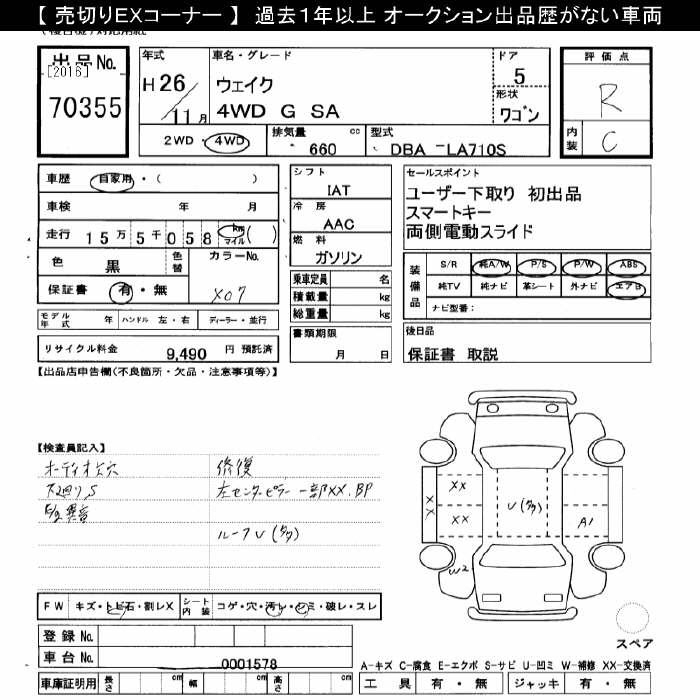 【 売切りEXコーナー 】 過去１年以上 オークション出品歴がない車両
出品No.
[2016]
70355
年式
H26/11月
車名・グレード
ウェイク
4WD G SA
ドア
5
形状
ワゴン
2WD・4WD
排気量 660 cc
型式 DBA -LA710S
評価点
R
内装 C
車歴 自家用・( )
車検 年 月
走行 15万5千058 km マイル ( )
色 黒 色替
カラーNo. X07
保証書 有・無
モデル年式 年 ハンドル 左・右 ディーラー・並行
リサイクル料金 9,490 円 預託済
シフト
IAT
冷房
AAC
燃料
ガソリン
乗車定員 名
積載量 kg
総重量 kg
書類期限
月 日
セールスポイント
ユーザー下取り 初出品
スマートキー
両側電動スライド
装備品
S/R 純A/W P/S P/W ABS
純TV 純ナビ 革シート 外ナビ エアB
ナビ型番:
後日品
保証書 取説
【出品店申告欄(不良箇所・欠品・注意事項等)】
【検査員記入】
オーディオ欠穴
下廻りS
修復
左センターピラー 一部XX.BP
ルーフU(多)
XX
XX
XX
U(多)
A1
W2
FW キズ・トビ石・割レX
シート内装 コゲ・穴・汚レ・シミ・破レ・スレ
登録No.
車台No. 0001578
車庫証明用 長さ cm 幅 cm 高さ cm
スペア
A-キズ C-腐食 E-エクボ S-サビ U-凹ミ W-補修 XX-交換済
工具 有・無 ジャッキ 有・無